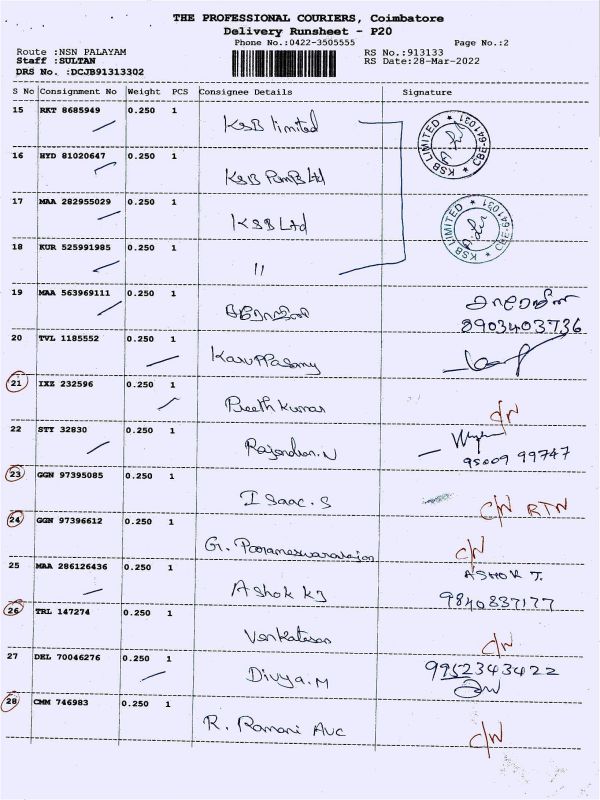 THE PROFESSIONAL COURIERS, Coimbatore
Delivery Runsheet - P20
Phone No.:0422-3505555 Page No.:2
Route :NSN PALAYAM RS No.:913133
Staff :SULTAN RS Date:28-Mar-2022
DRS No. :DCJB91313302
S No Consignment No Weight PCS Consignee Details Signature
15 RKT 8685949 0.250 1 KSB limited
KSB LIMITED * CBE-641051 *
16 HYD 81020647 0.250 1 KSB PumB Ltd
17 MAA 282955029 0.250 1 KSB Ltd
KSB LIMITED * CBE-641051 *
18 KUR 525991985 0.250 1 11
19 MAA 563969111 0.250 1
8903403736
20 TVL 1185552 0.250 1 Karuppasamy
21 IXZ 232596 0.250 1 Preeth Kumar C/N
22 STY 32830 0.250 1 Rajendran.N
95009 99747
23 GGN 97395085 0.250 1 Isaac.S C/N RTN
24 GGN 97396612 0.250 1 G. Parameswararajan C/N
25 MAA 286126436 0.250 1 Ashok KJ ASHOK T.
9840837177
26 TRL 147274 0.250 1 Venkatesan C/N
27 DEL 70046276 0.250 1 Divya.M 9952343422
28 CMM 746983 0.250 1 R. Ramani Avc C/N